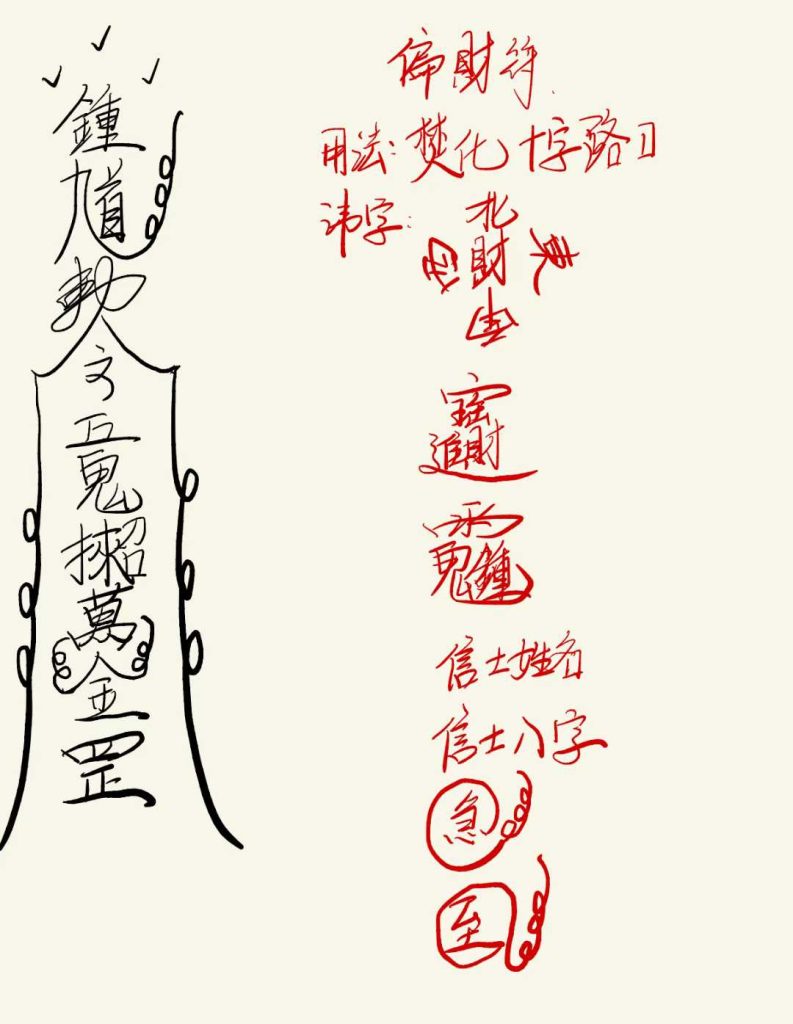 鍾馗勅五鬼萬金罡
偏財符.
用法:焚化十字路口
讳字:
北
西財東
南
進財
鬼鍾
信士姓名
信士八字
急
至